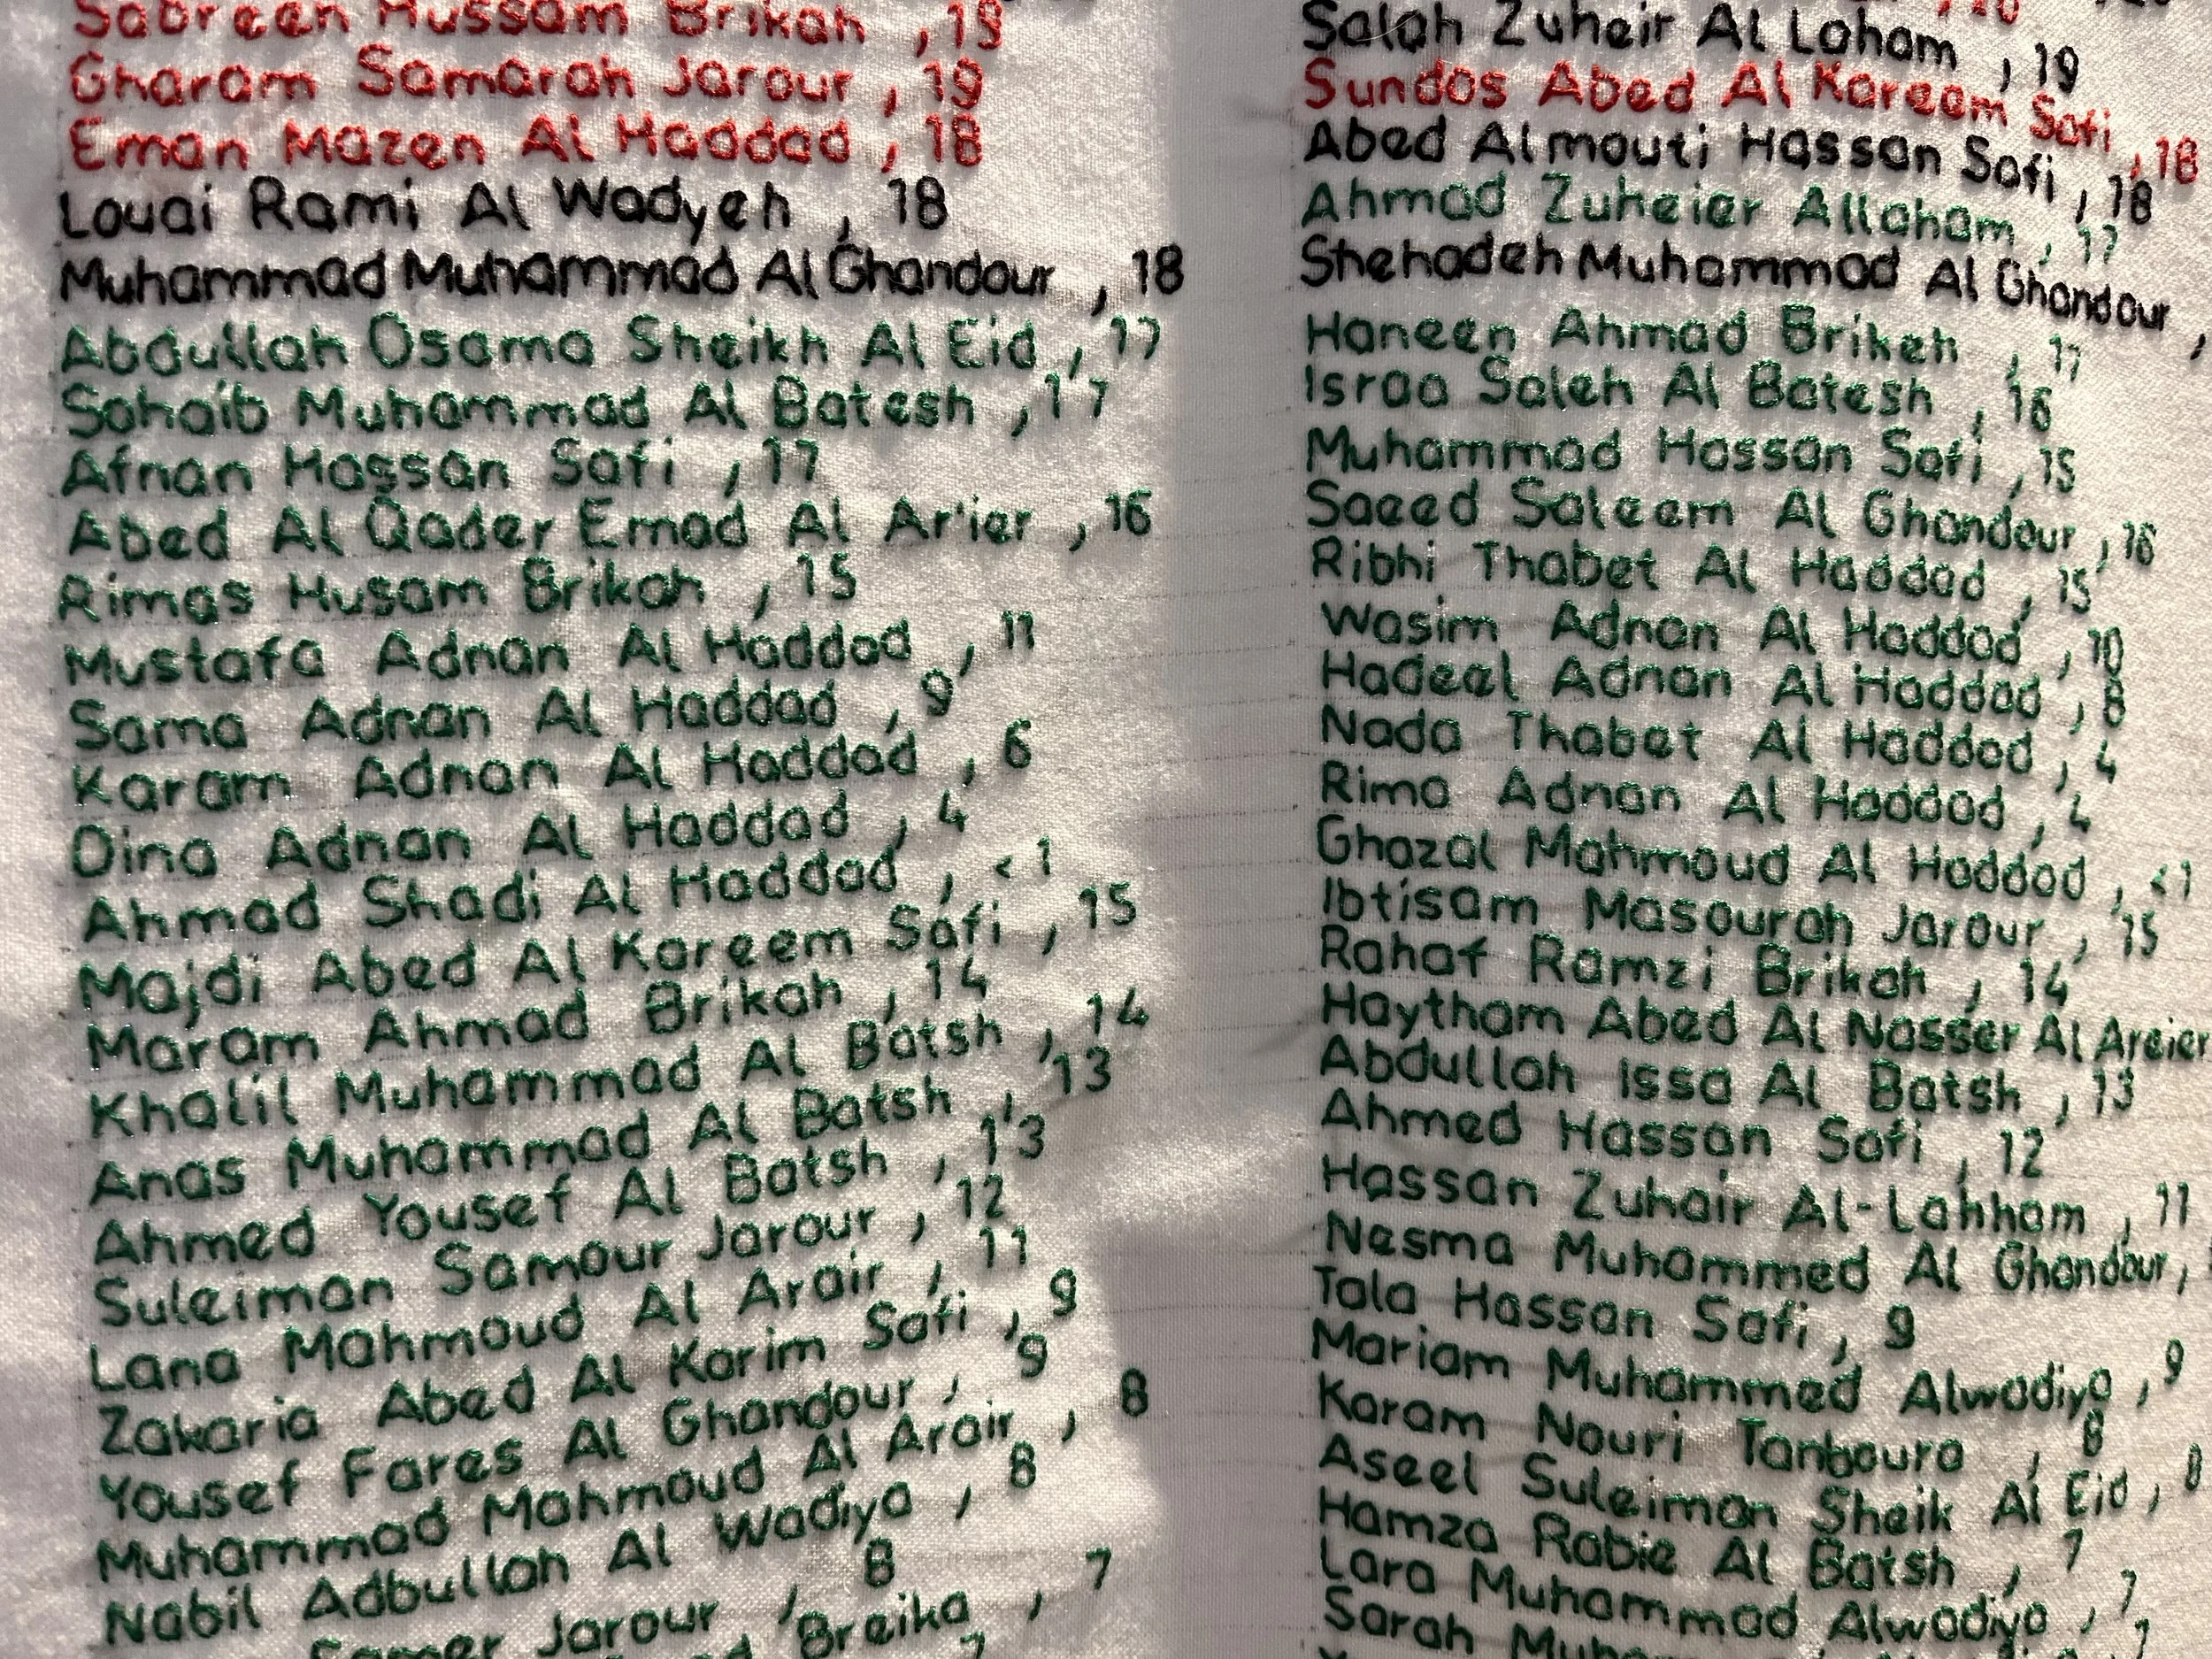 Sabreen Hussam Brikah , 19
Gharam Samarah Jarour , 19
Eman Mazen Al Haddad , 18
Louai Rami Al Wadyeh , 18
Muhammad Muhammad Al Ghandour , 18
Abdullah Osama Sheikh Al Eid , 17
Sohaib Muhammad Al Batesh , 17
Afnan Hassan Safi , 17
Abed Al Qader Emad Al Ar'ier , 16
Rimas Husam Brikah , 15
Mustafa Adnan Al Haddad , 11
Sama Adnan Al Haddad , 9
Karam Adnan Al Haddad , 6
Dina Adnan Al Haddad , 4
Ahmad Shadi Al Haddad , <1
Majdi Abed Al Kareem Safi , 15
Maram Ahmad Brikah , 14
Khalil Muhammad Al Batsh , 14
Anas Muhammad Al Batsh , 13
Ahmed Yousef Al Batsh , 13
Suleiman Samour Jarour , 12
Lana Mahmoud Al Arair , 11
Zakaria Abed Al Karim Safi , 9
Yousef Fares Al Ghandour , 9
Muhammad Mahmoud Al Arair , 8
Nabil Adbullah Al Wadiya , 8
Jarour , 8
Breika , 7
Salah Zuheir Al Laham , 19
Sundos Abed Al Kareem Safi , 18
Abed Almouti Hassan Safi , 18
Ahmad Zuheier Allaham , 17
Shehadeh Muhammad Al Ghandour ,
Haneen Ahmad Brikeh , 17
Israa Saleh Al Batesh , 16
Muhammad Hassan Safi , 15
Saeed Saleem Al Ghandour , 16
Ribhi Thabet Al Haddad , 15
Wasim Adnan Al Haddad , 10
Hadeel Adnan Al Haddad , 8
Nada Thabet Al Haddad , 4
Rima Adnan Al Haddad , 4
Ghazal Mahmoud Al Haddad , <1
Ibtisam Masourah Jarour , 15
Rahaf Ramzi Brikah , 14
Haytham Abed Al Nasser Al Areier
Abdullah Issa Al Batsh , 13
Ahmed Hassan Safi , 12
Hassan Zuhair Al-Lahham , 11
Nesma Muhammed Al Ghandour ,
Tala Hassan Safi , 9
Mariam Muhammed Alwadiya , 9
Karam Nouri Tanboura , 8
Aseel Suleiman Sheik Al Eid , 8
Hamza Rabie Al Batsh , 7
Lara Muhammad Alwadiya , 7
Sarah